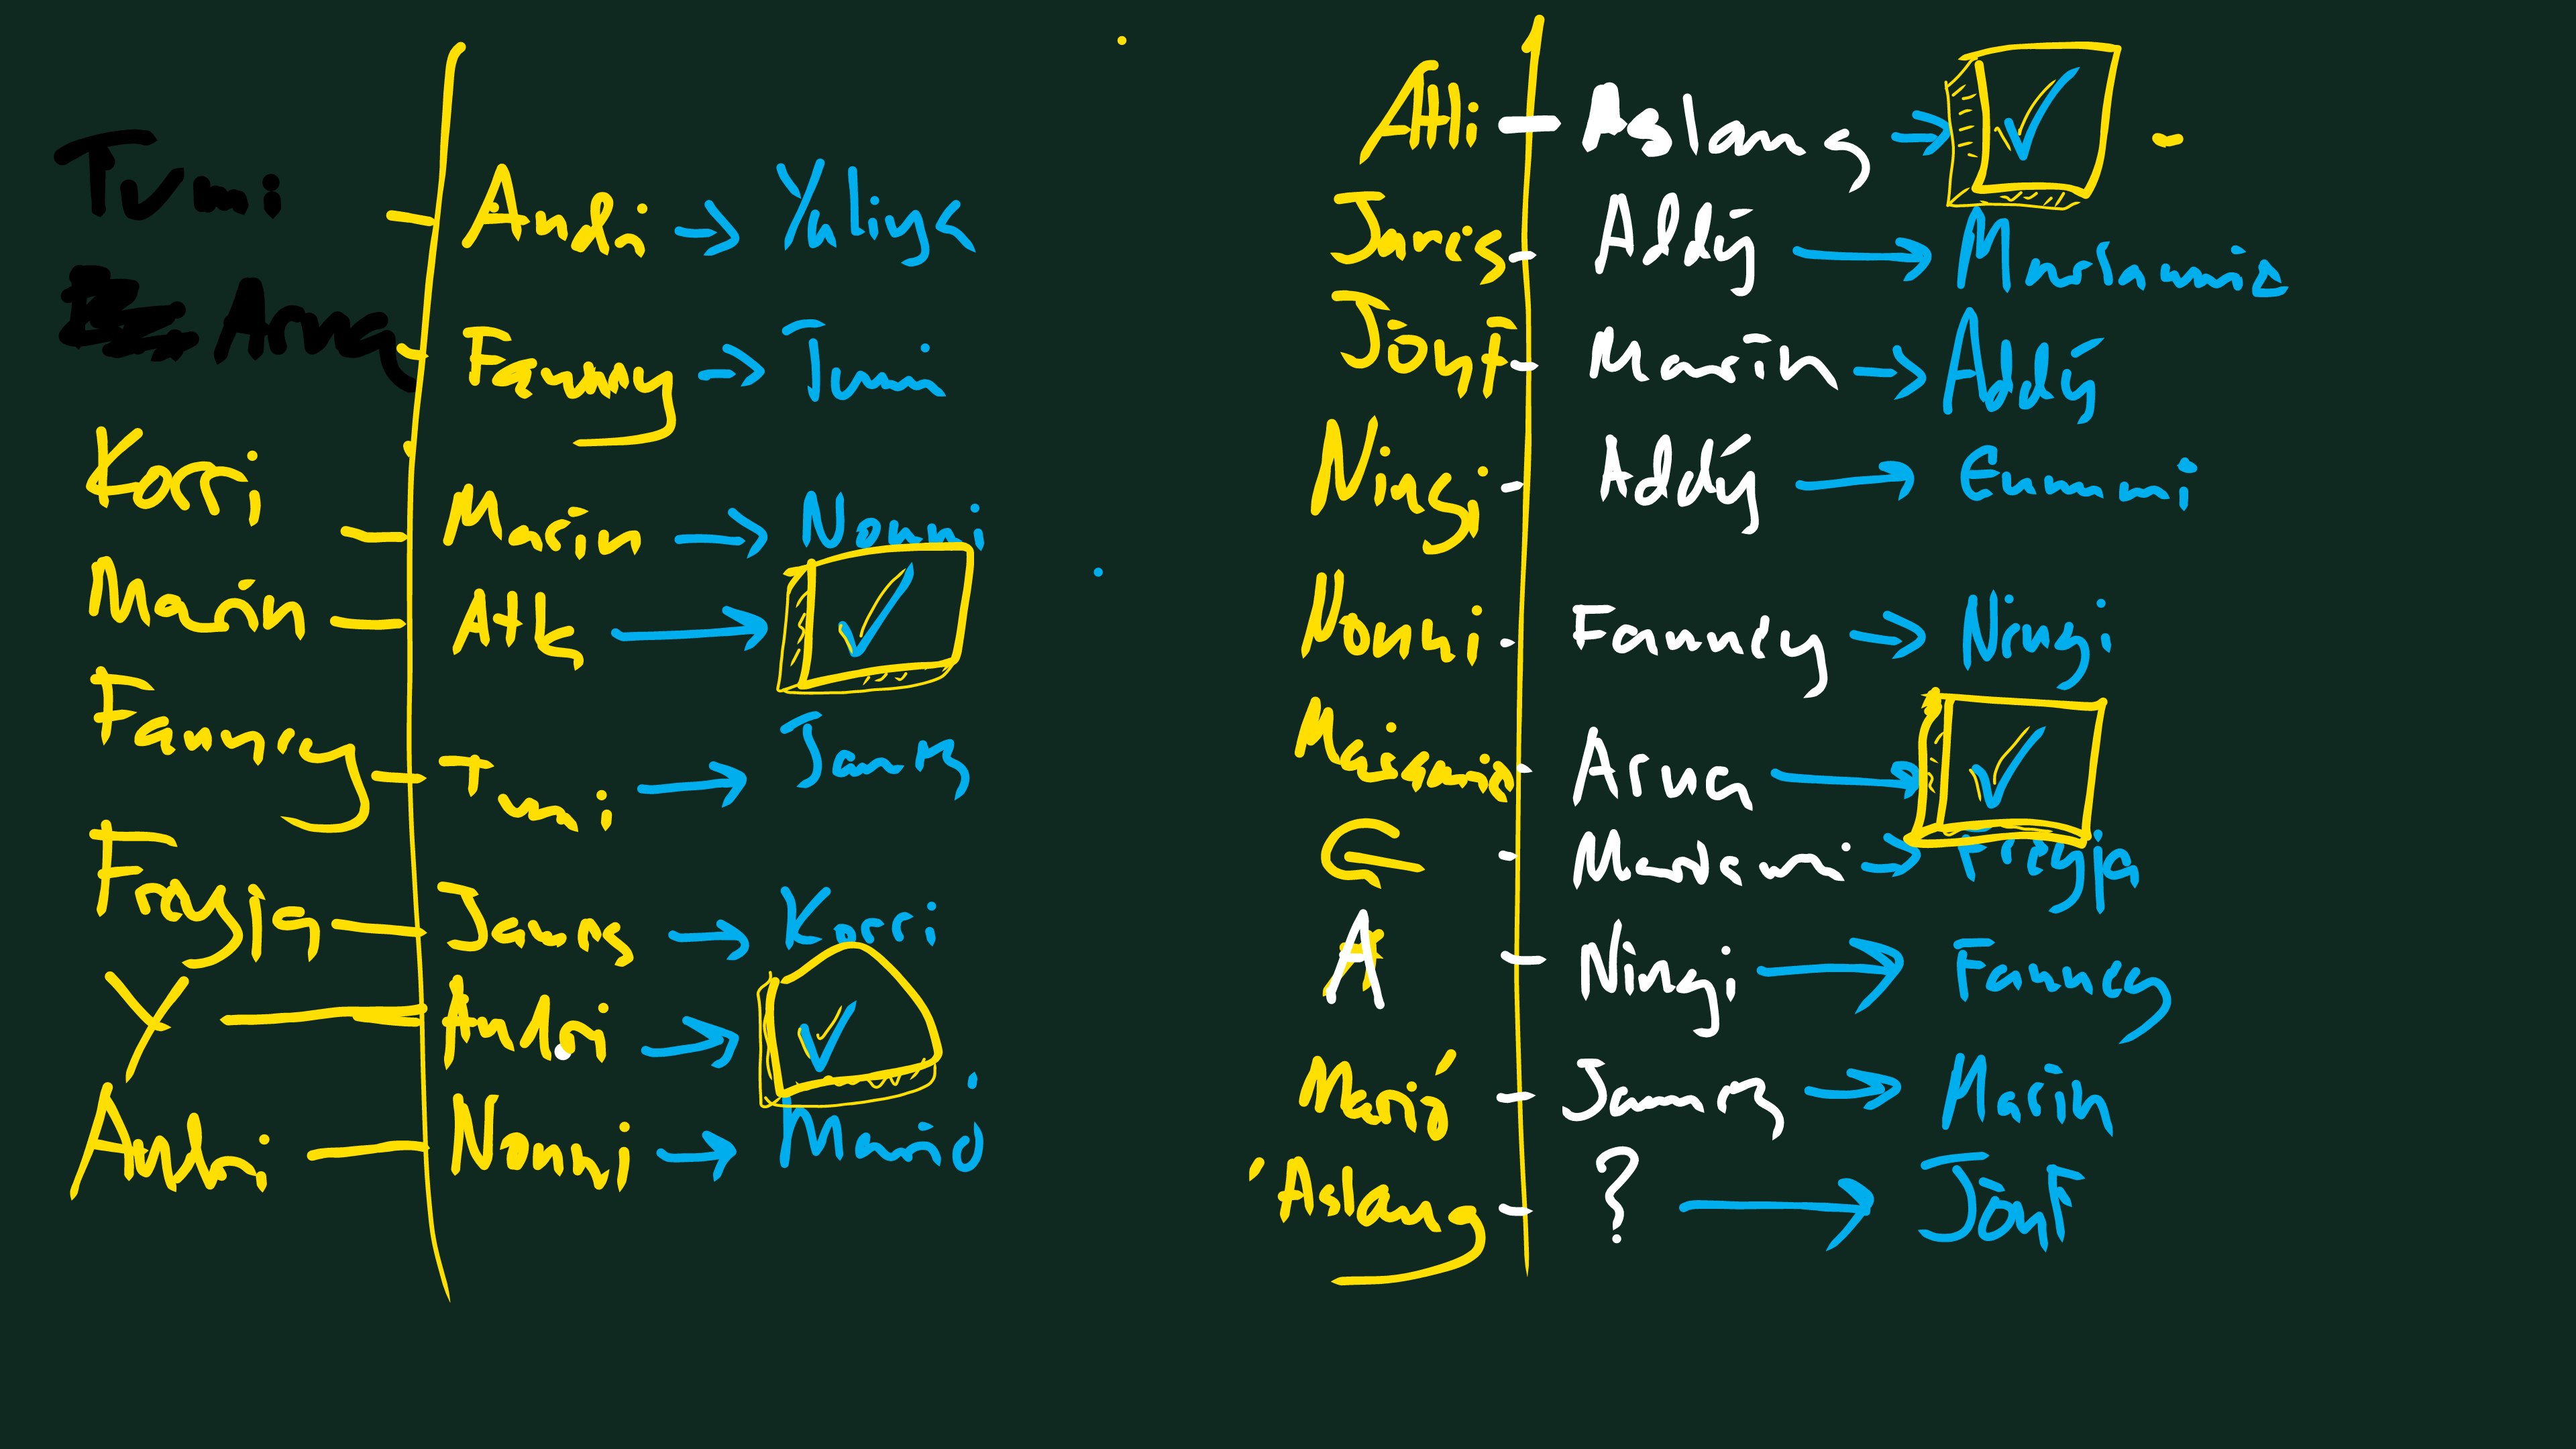 Tumi – Andri → Yuliya
Arna – Fanney → Tumi
Korri – Marin → Nonni
Marin – Atli → ✓
Fanney – Tumi → James
Freyja – James → Korri
Y – Andri → ✓
Andri – Nonni → Marió
Atli – Aslaug → ✓ -
James – Addý → 
Jónf – Marín → Addý
Ningi – Addý → Emmi
Nonni – Fanney → Ningi
Arna → ✓
→ Freyja
A – Ningi → Fanney
Marió – James → Marín
Áslaug – ? → Jónf